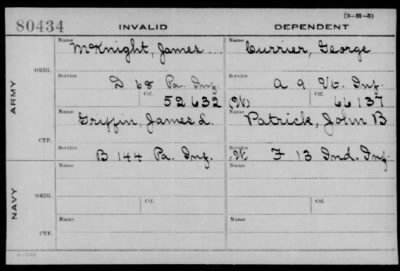 (3-11-3)
80434 INVALID DEPENDENT
ARMY
ORIG.
Name
McKnight, James
Name
Currier, George
Service
D 68 Pa. Inf.
Ctf.
52632
Service
A 9 Vt. Inf.
(W) Ctf.
66137
CTF.
Name
Griffin, James L.
Name
Patrick, John B
Service
B 144 Pa. Inf.
Service
W. F 13 Ind. Inf.
NAVY
ORIG.
Name
Name
Service
Ctf.
Service
Ctf.
CTF.
Name
Name